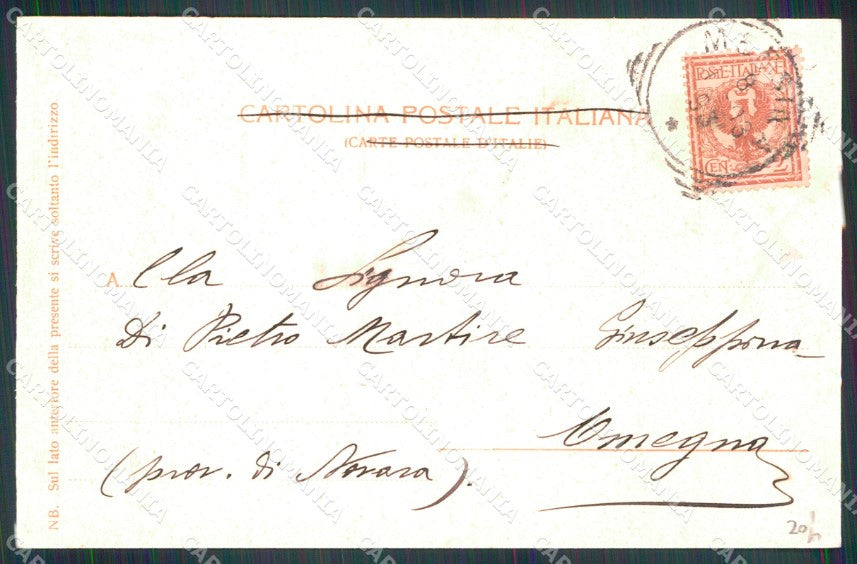 CARTOLINA POSTALE ITALIANA
(CARTE POSTALE D'ITALIE)
POSTE ITALIANE
CEN 2
NB. Sul lato anteriore della presente si scrive soltanto l'indirizzo.
A lla Signora
Di Pietro Martire Giuseppina
Omegna
(prov. di Novara).
20/
CARTOLINOMANIA